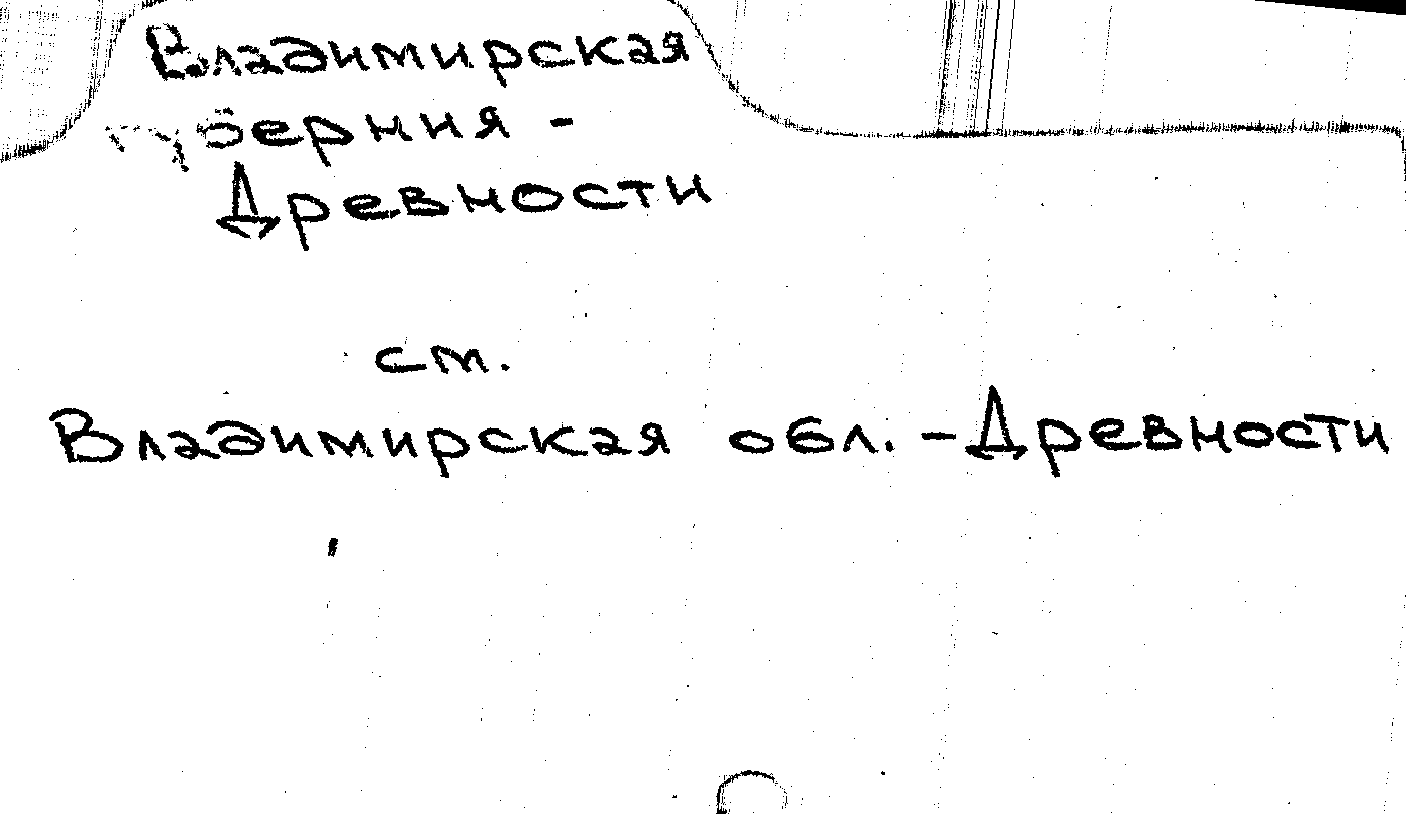 Владимирская
губерния -
Древности
см.
Владимирская обл. - Древности